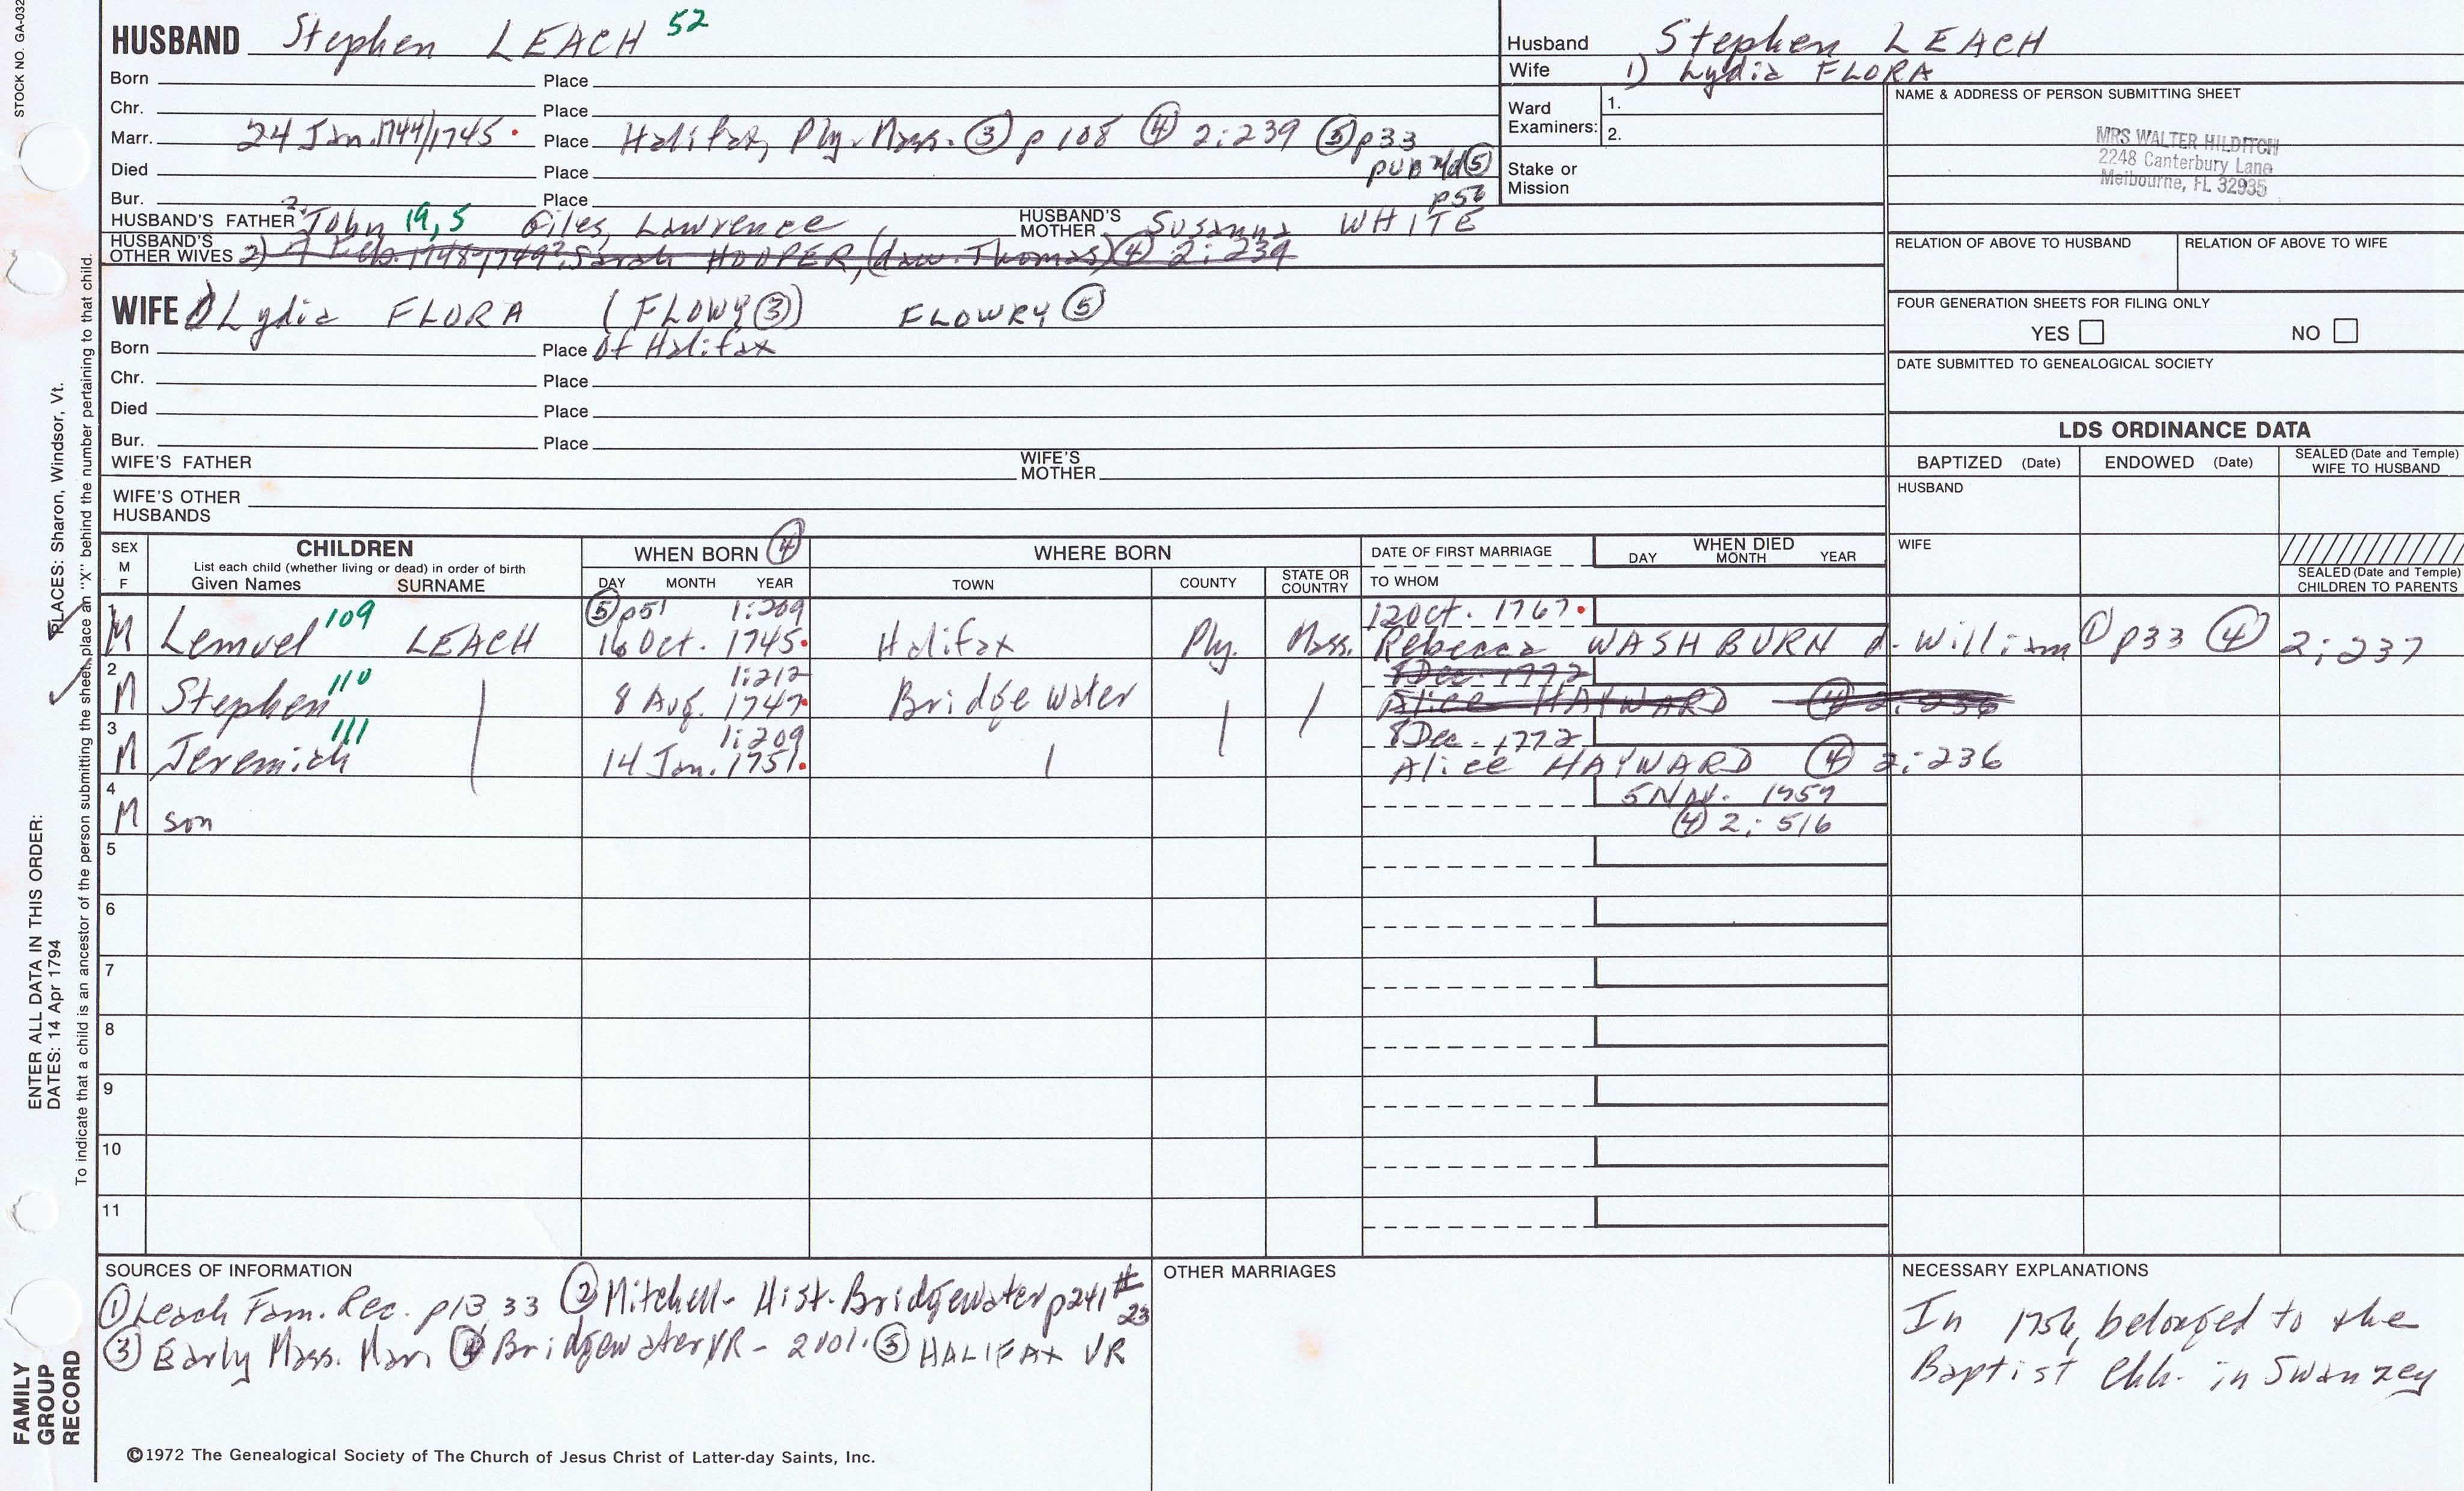 STOCK NO. GA-032
HUSBAND Stephen LEACH 52
Born Place
Chr. Place
Marr. 24 Jan. 1744/1745 Place Halifax, Ply. Mass. ③ p 108 ④ 2:239 ⑤ p33
Died Place PUB ⑤
Bur. Place p56
HUSBAND'S FATHER John 19, 5 Giles, Lawrence HUSBAND'S MOTHER Susanna WHITE
HUSBAND'S OTHER WIVES 2) Sarah HOOPER, (dau. Thomas) ④ 2:239
Husband Stephen LEACH
Wife 1) Lydia FLORA
Ward Examiners: 1.
2.
Stake or Mission
NAME & ADDRESS OF PERSON SUBMITTING SHEET
MRS WALTER HILDITCH
2248 Canterbury Lane
Melbourne, FL 32935
RELATION OF ABOVE TO HUSBAND RELATION OF ABOVE TO WIFE
FOUR GENERATION SHEETS FOR FILING ONLY
YES NO
DATE SUBMITTED TO GENEALOGICAL SOCIETY
WIFE 1) Lydia FLORA (FLOWY ③) FLOWRY ⑤
Born Place Of Halifax
Chr. Place
Died Place
Bur. Place
WIFE'S FATHER WIFE'S MOTHER
WIFE'S OTHER HUSBANDS
LDS ORDINANCE DATA
BAPTIZED (Date) ENDOWED (Date) SEALED (Date and Temple) WIFE TO HUSBAND
HUSBAND
WIFE
SEALED (Date and Temple) CHILDREN TO PARENTS
SEX M F
CHILDREN
List each child (whether living or dead) in order of birth
Given Names SURNAME
WHEN BORN ④
DAY MONTH YEAR
WHERE BORN
TOWN COUNTY STATE OR COUNTRY
DATE OF FIRST MARRIAGE
TO WHOM
WHEN DIED
DAY MONTH YEAR
1 ⑤ p51 1:209 12 Oct. 1767
M Lemuel 109 LEACH 16 Oct. 1745 Halifax Ply. Mass. Rebecca WASHBURN d. William ① p33 ④ 2:237
2 1:212 8 Dec. 1772
M Stephen 110 8 Aug. 1747 Bridgewater Alice HAYWARD ④ 2:236
3 1:209 8 Dec. 1772
M Jeremiah 111 14 Jan. 1751 Alice HAYWARD ④ 2:236
4 5 Nov. 1759
M son ④ 2:516
5
6
7
8
9
10
11
SOURCES OF INFORMATION
① Leach Fam. Rec. p13, 33 ② Mitchell - Hist. Bridgewater p241 # 23
③ Early Mass. Marr. ④ Bridgewater VR - 2 vol. ⑤ HALIFAX VR
OTHER MARRIAGES
NECESSARY EXPLANATIONS
In 1756, belonged to the
Baptist Chh. in Swanzey
©1972 The Genealogical Society of The Church of Jesus Christ of Latter-day Saints, Inc.
FAMILY
GROUP
RECORD
ENTER ALL DATA IN THIS ORDER:
DATES: 14 Apr 1794
PLACES: Sharon, Windsor, Vt.
To indicate that a child is an ancestor of the person submitting the sheet, place an "X" behind the number pertaining to that child.